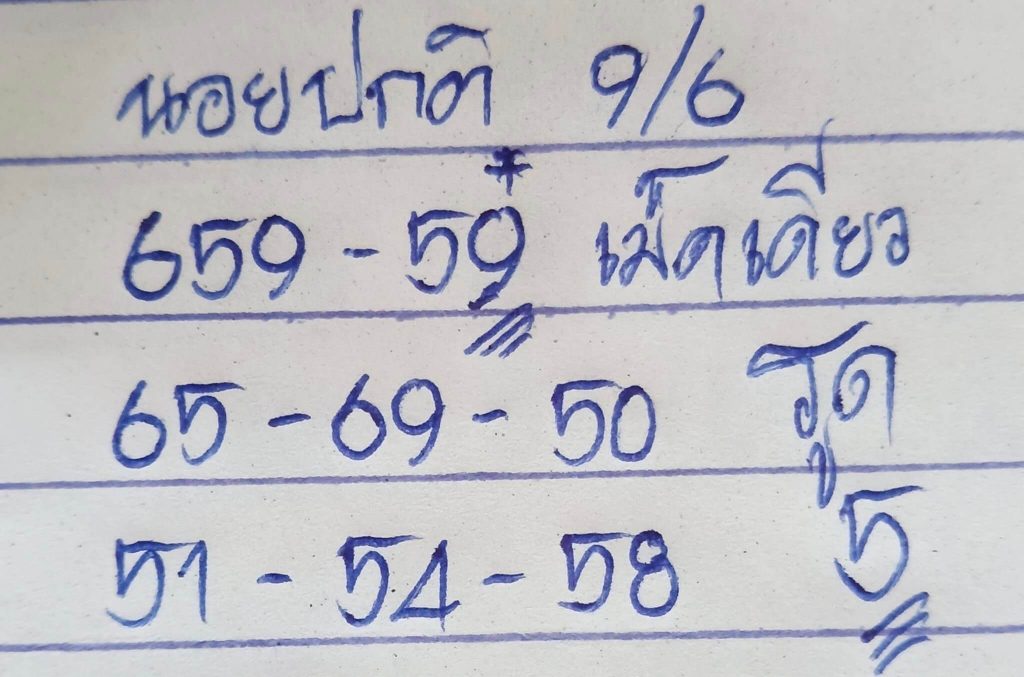 นอยปกติ 9/6
659 - 59 * เม็ดเดียว
65 - 69 - 50 รูด
51 - 54 - 58 5